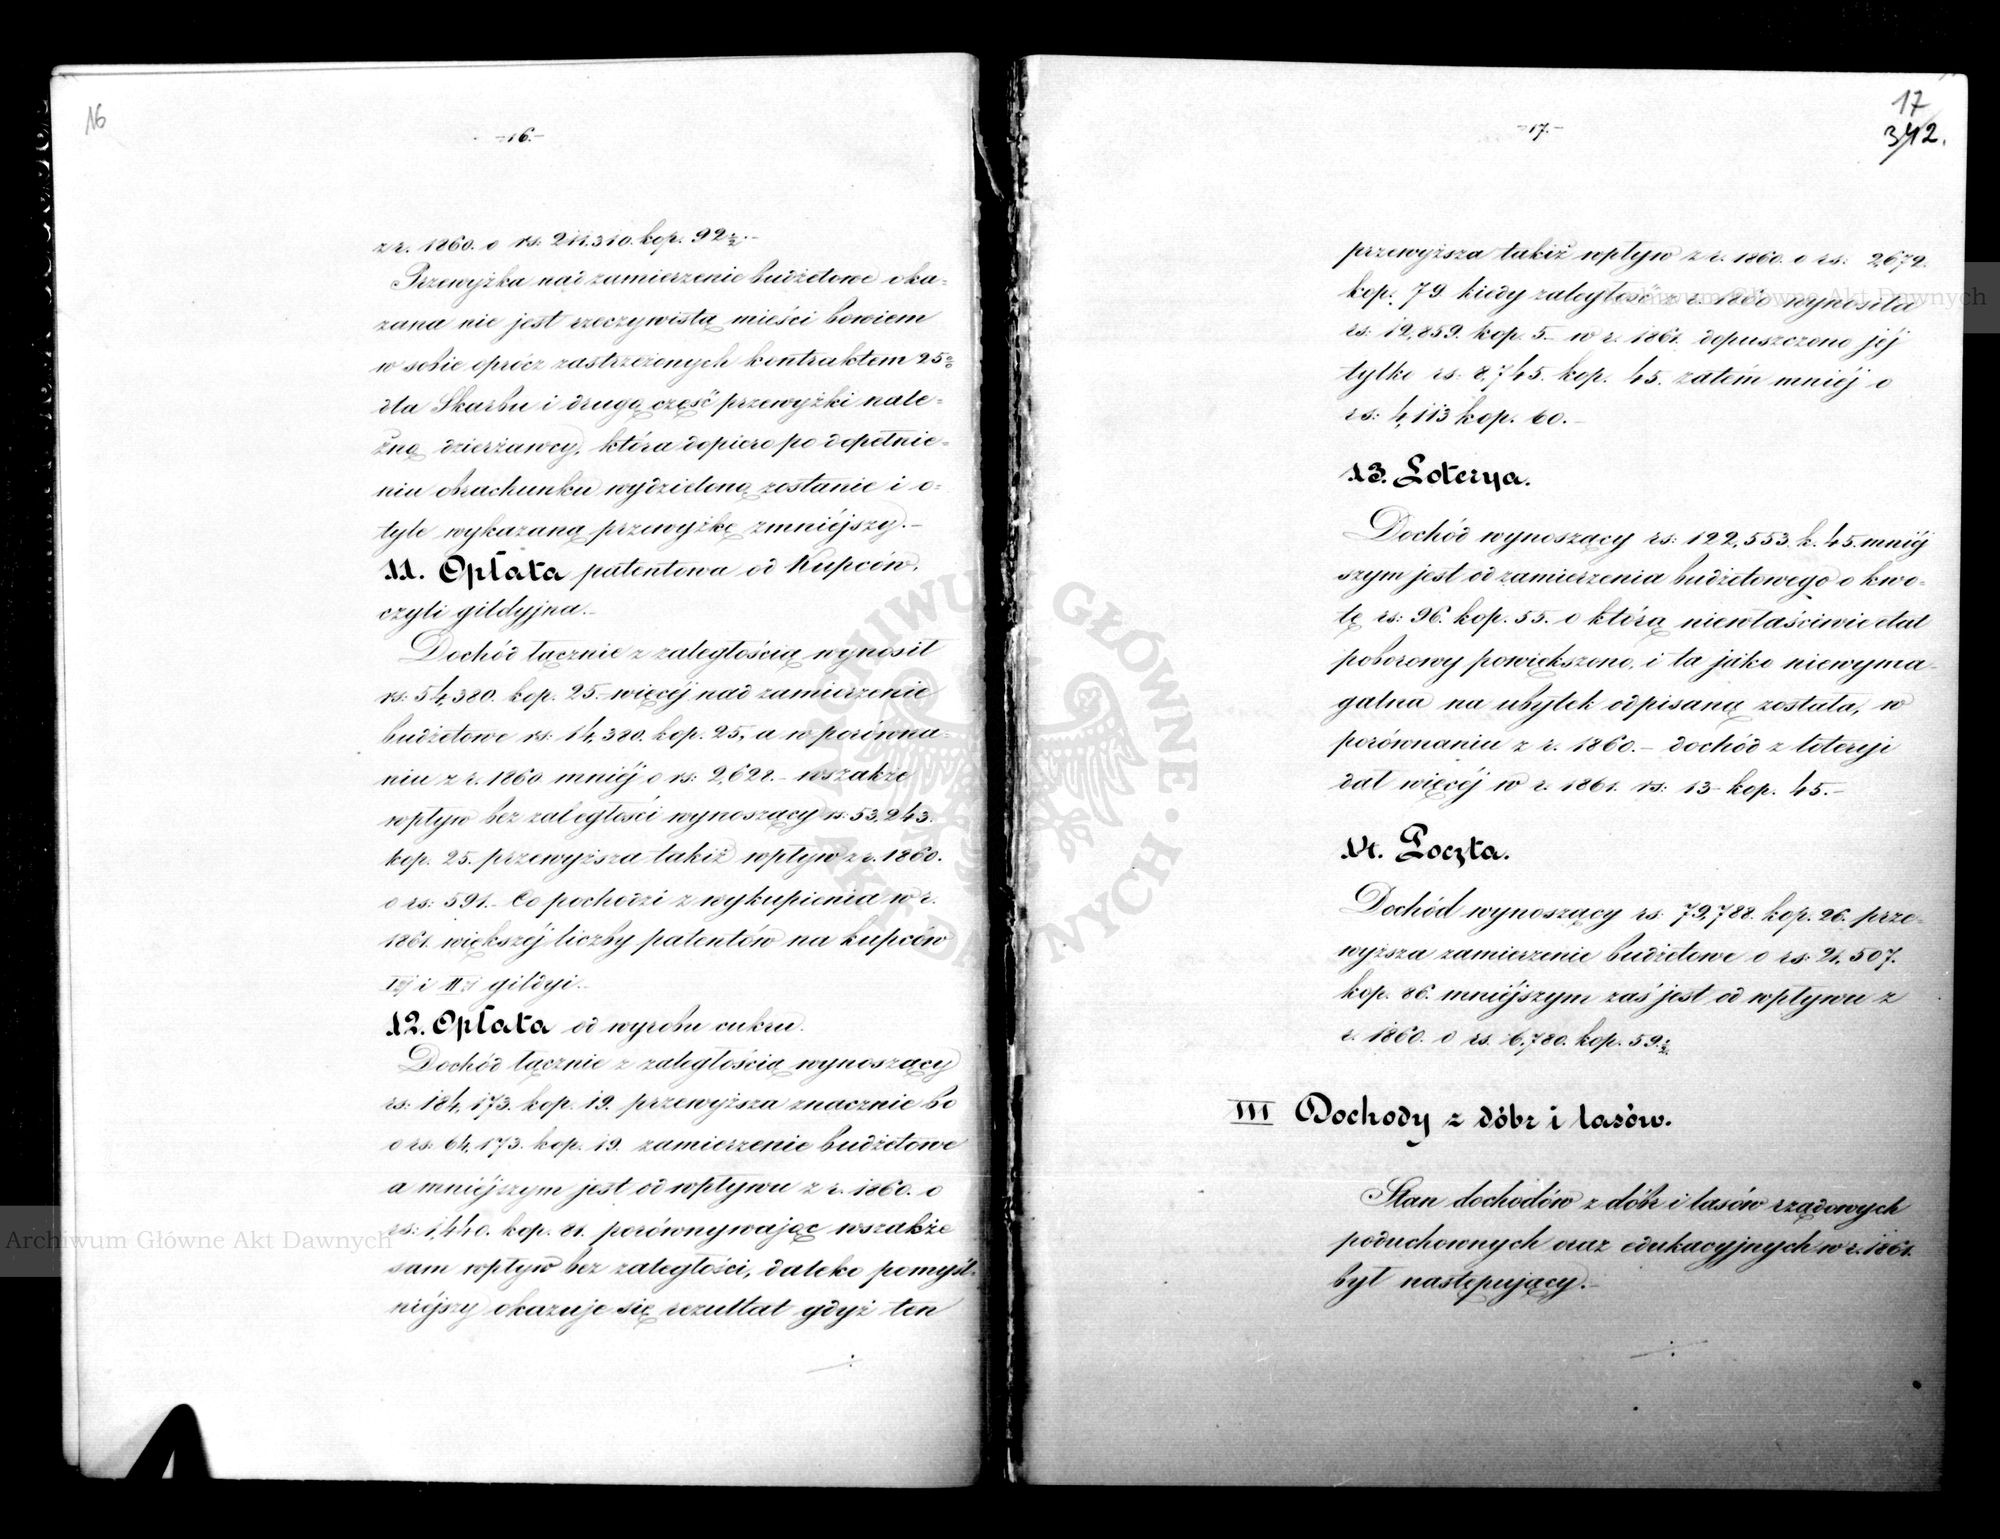 16
-16.-
z r. 1860. o rs: 211.310. kop. 92½.-
Przewyżka nad zamierzenie budżetowe oka-
zana nie jest rzeczywistą mieści bowiem
w sobie oprócz zastrzeżonych kontraktem 25%
dla Skarbu i drugą część przewyżki nale-
żną dzierżawcy, która dopiero po dopełnie-
niu obrachunku wydzieloną zostanie i o-
tyle wykazaną przewyżkę zmniéjszy.-
11. Opłata patentowa od Kupców,
czyli gildyjna.-
Dochód łącznie z zaległością wynosił
rs: 54,380. kop. 25.- więcéj nad zamierzenie
budżetowe rs: 14,380. kop. 25, a w porówna-
niu z r. 1860 mniéj o rs: 2,628.- wszakże
wpływ bez zaległości wynoszący rs: 53,243.
kop. 25. przewyższa takiż wpływ z r. 1860.
o rs: 591.- Co pochodzi z wykupienia w r.
1861. większéj liczby patentów na kupców
I-éj i II-éj gildyi.-
12. Opłata od wyrobu cukru.
Dochód łącznie z zaległością wynoszący
rs: 184,173. kop. 19. przewyższa znacznie bo
o rs: 64,173. kop. 19. zamierzenie budżetowe
a mniéjszym jest od wpływu z r. 1860. o
rs: 1,440. kop. 81. porównywając wszakże
sam wpływ bez zaległości, daleko pomyśl-
niéjszy okazuje się rezultat gdyż ten
17
342.
-17.-
przewyższa takiż wpływ z r. 1860. o rs: 2,672.
kop. 79 kiedy zaległość z r. 1860 wynosiła
rs: 12,859. kop. 5.- w r. 1861. dopuszczono jéj
tylko rs: 8,745. kop. 45. zatém mniéj o
rs: 4,113 kop. 60.-
13. Loterya.
Dochód wynoszący rs: 122,553. k. 45. mniéj
szym jest od zamierzenia budżetowego o kwo-
tę rs: 96. kop. 55. o którą niewłaściwie etat
poborowy powiększono, i ta jako niewyma-
galna na ubytek odpisaną została, w
porównaniu z r. 1860.- dochód z loteryi
dał więcéj w r. 1861. rs: 13 kop. 45.-
14. Poczta.
Dochód wynoszący rs: 79,788. kop. 26. prze-
wyższa zamierzenie budżetowe o rs: 21,507.
kop. 86. mniéjszym zaś jest od wpływu z
r. 1860. o rs. 6,780. kop. 59½.
III Dochody z dóbr i lasów.
Stan dochodów z dóbr i lasów rządowych
poduchownych oraz edukacyjnych w r. 1861.
był następujący.-
Archiwum Główne Akt Dawnych
Archiwum Główne Akt Dawnych
ARCHIWUM GŁÓWNE AKT DAWNYCH